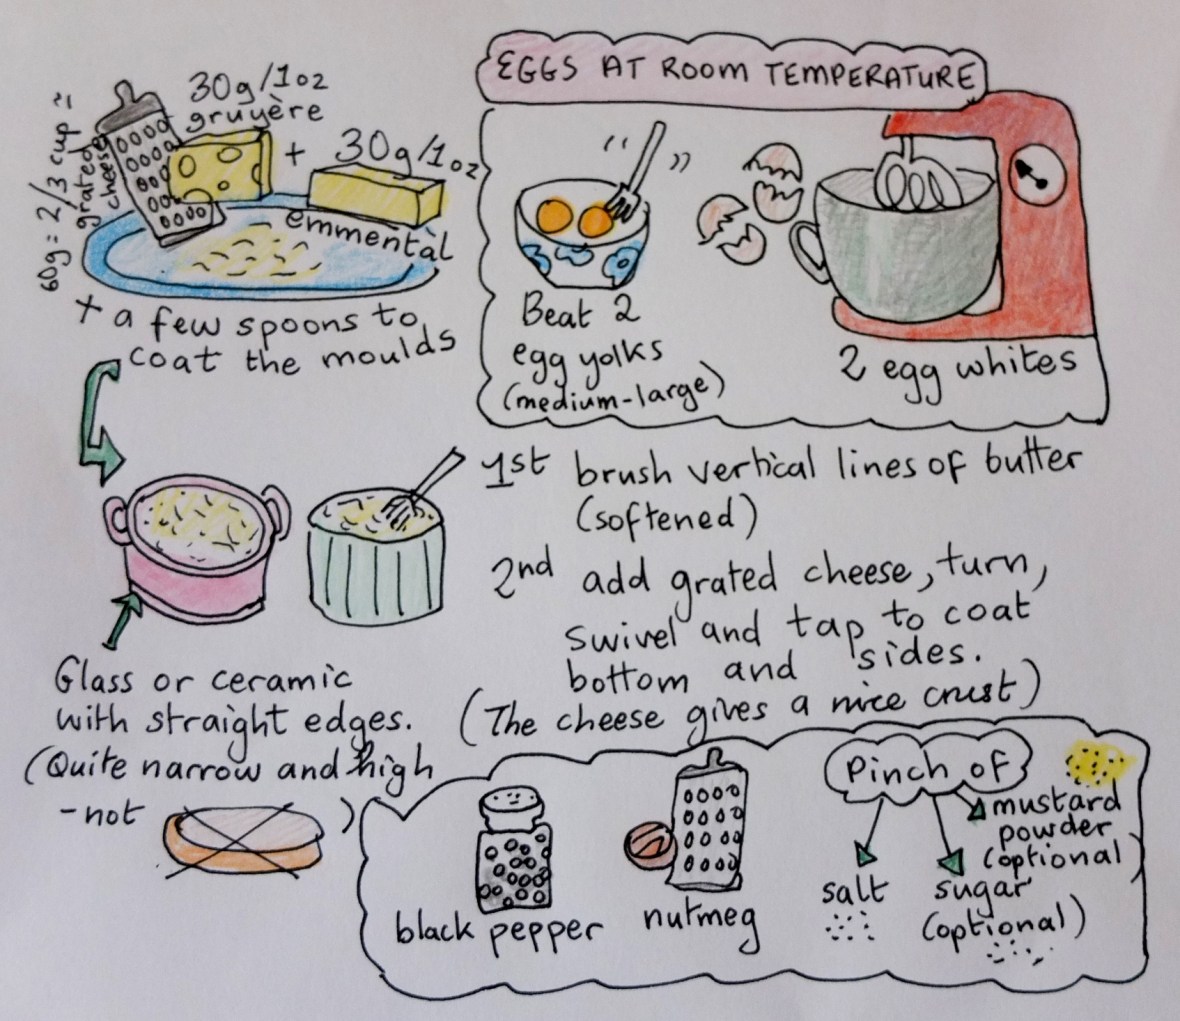 30g/1oz
gruyère
+ 30g/1oz
emmental
60g = 2/3 cup ≈
grated
cheese
+ a few spoons to
coat the moulds
EGGS AT ROOM TEMPERATURE
Beat 2
egg yolks
(medium-large)
2 egg whites
1st brush vertical lines of butter
(softened)
2nd add grated cheese, turn,
swivel and tap to coat
bottom and sides.
(The cheese gives a nice crust)
Glass or ceramic
with straight edges.
(Quite narrow and high
-not )
black pepper
nutmeg
Pinch of
salt
sugar
(optional)
mustard
powder
(optional)